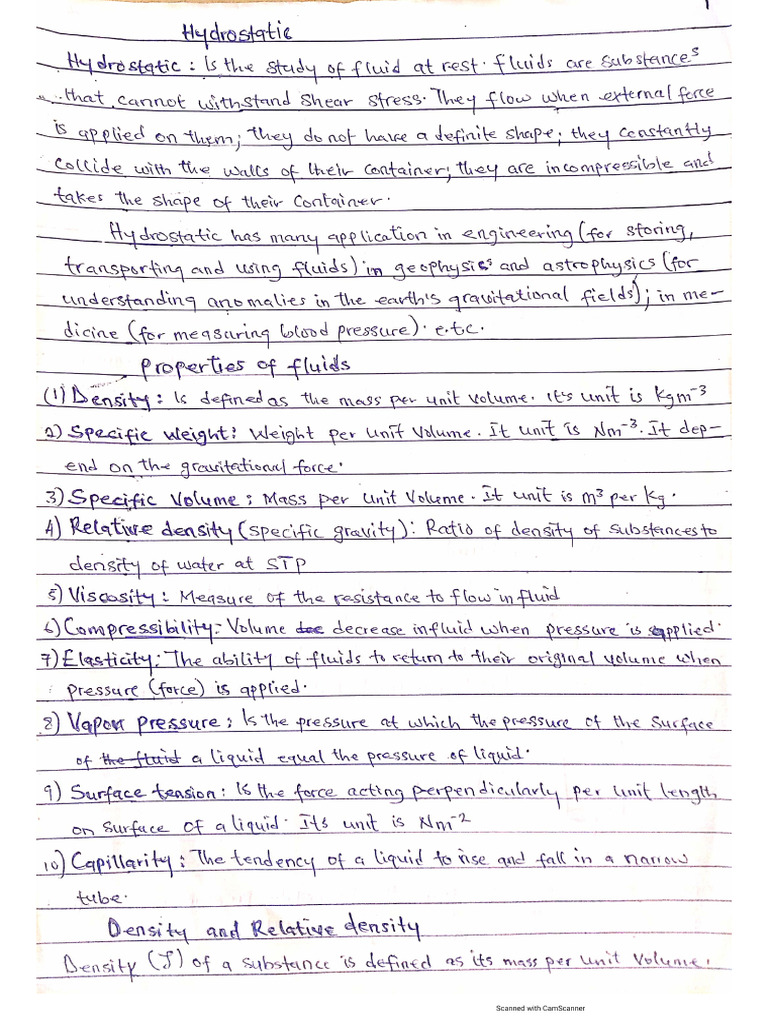 1
Hydrostatic
Hydrostatic: Is the study of fluid at rest. Fluids are substances
that cannot withstand shear stress. They flow when external force
is applied on them; they do not have a definite shape; they constantly
collide with the walls of their container; they are incompressible and
takes the shape of their container.
Hydrostatic has many application in engineering (for storing,
transporting and using fluids) in geophysics and astrophysics (for
understanding anomalies in the earth's gravitational fields); in me-
dicine (for measuring blood pressure). e.t.c.
Properties of fluids
(1) Density: Is defined as the mass per unit volume. It's unit is Kgm⁻³
2) Specific Weight: Weight per Unit Volume. It unit is Nm⁻³. It dep-
end on the gravitational force.
3) Specific Volume: Mass per Unit Volume. It unit is m³ per Kg.
4) Relative density (specific gravity): Ratio of density of substances to
density of water at STP
5) Viscosity: Measure of the resistance to flow in fluid
6) Compressibility:- Volume decrease in fluid when pressure is applied.
7) Elasticity: The ability of fluids to return to their original volume when
pressure (force) is applied.
8) Vapour pressure: Is the pressure at which the pressure of the surface
of the fluid a liquid equal the pressure of liquid.
9) Surface tension: Is the force acting perpendicularly per Unit length
on surface of a liquid. Its unit is Nm⁻²
10) Capillarity: The tendency of a liquid to rise and fall in a narrow
tube.
Density and Relative density
Density (ρ) of a substance is defined as its mass per unit Volume.
Scanned with CamScanner